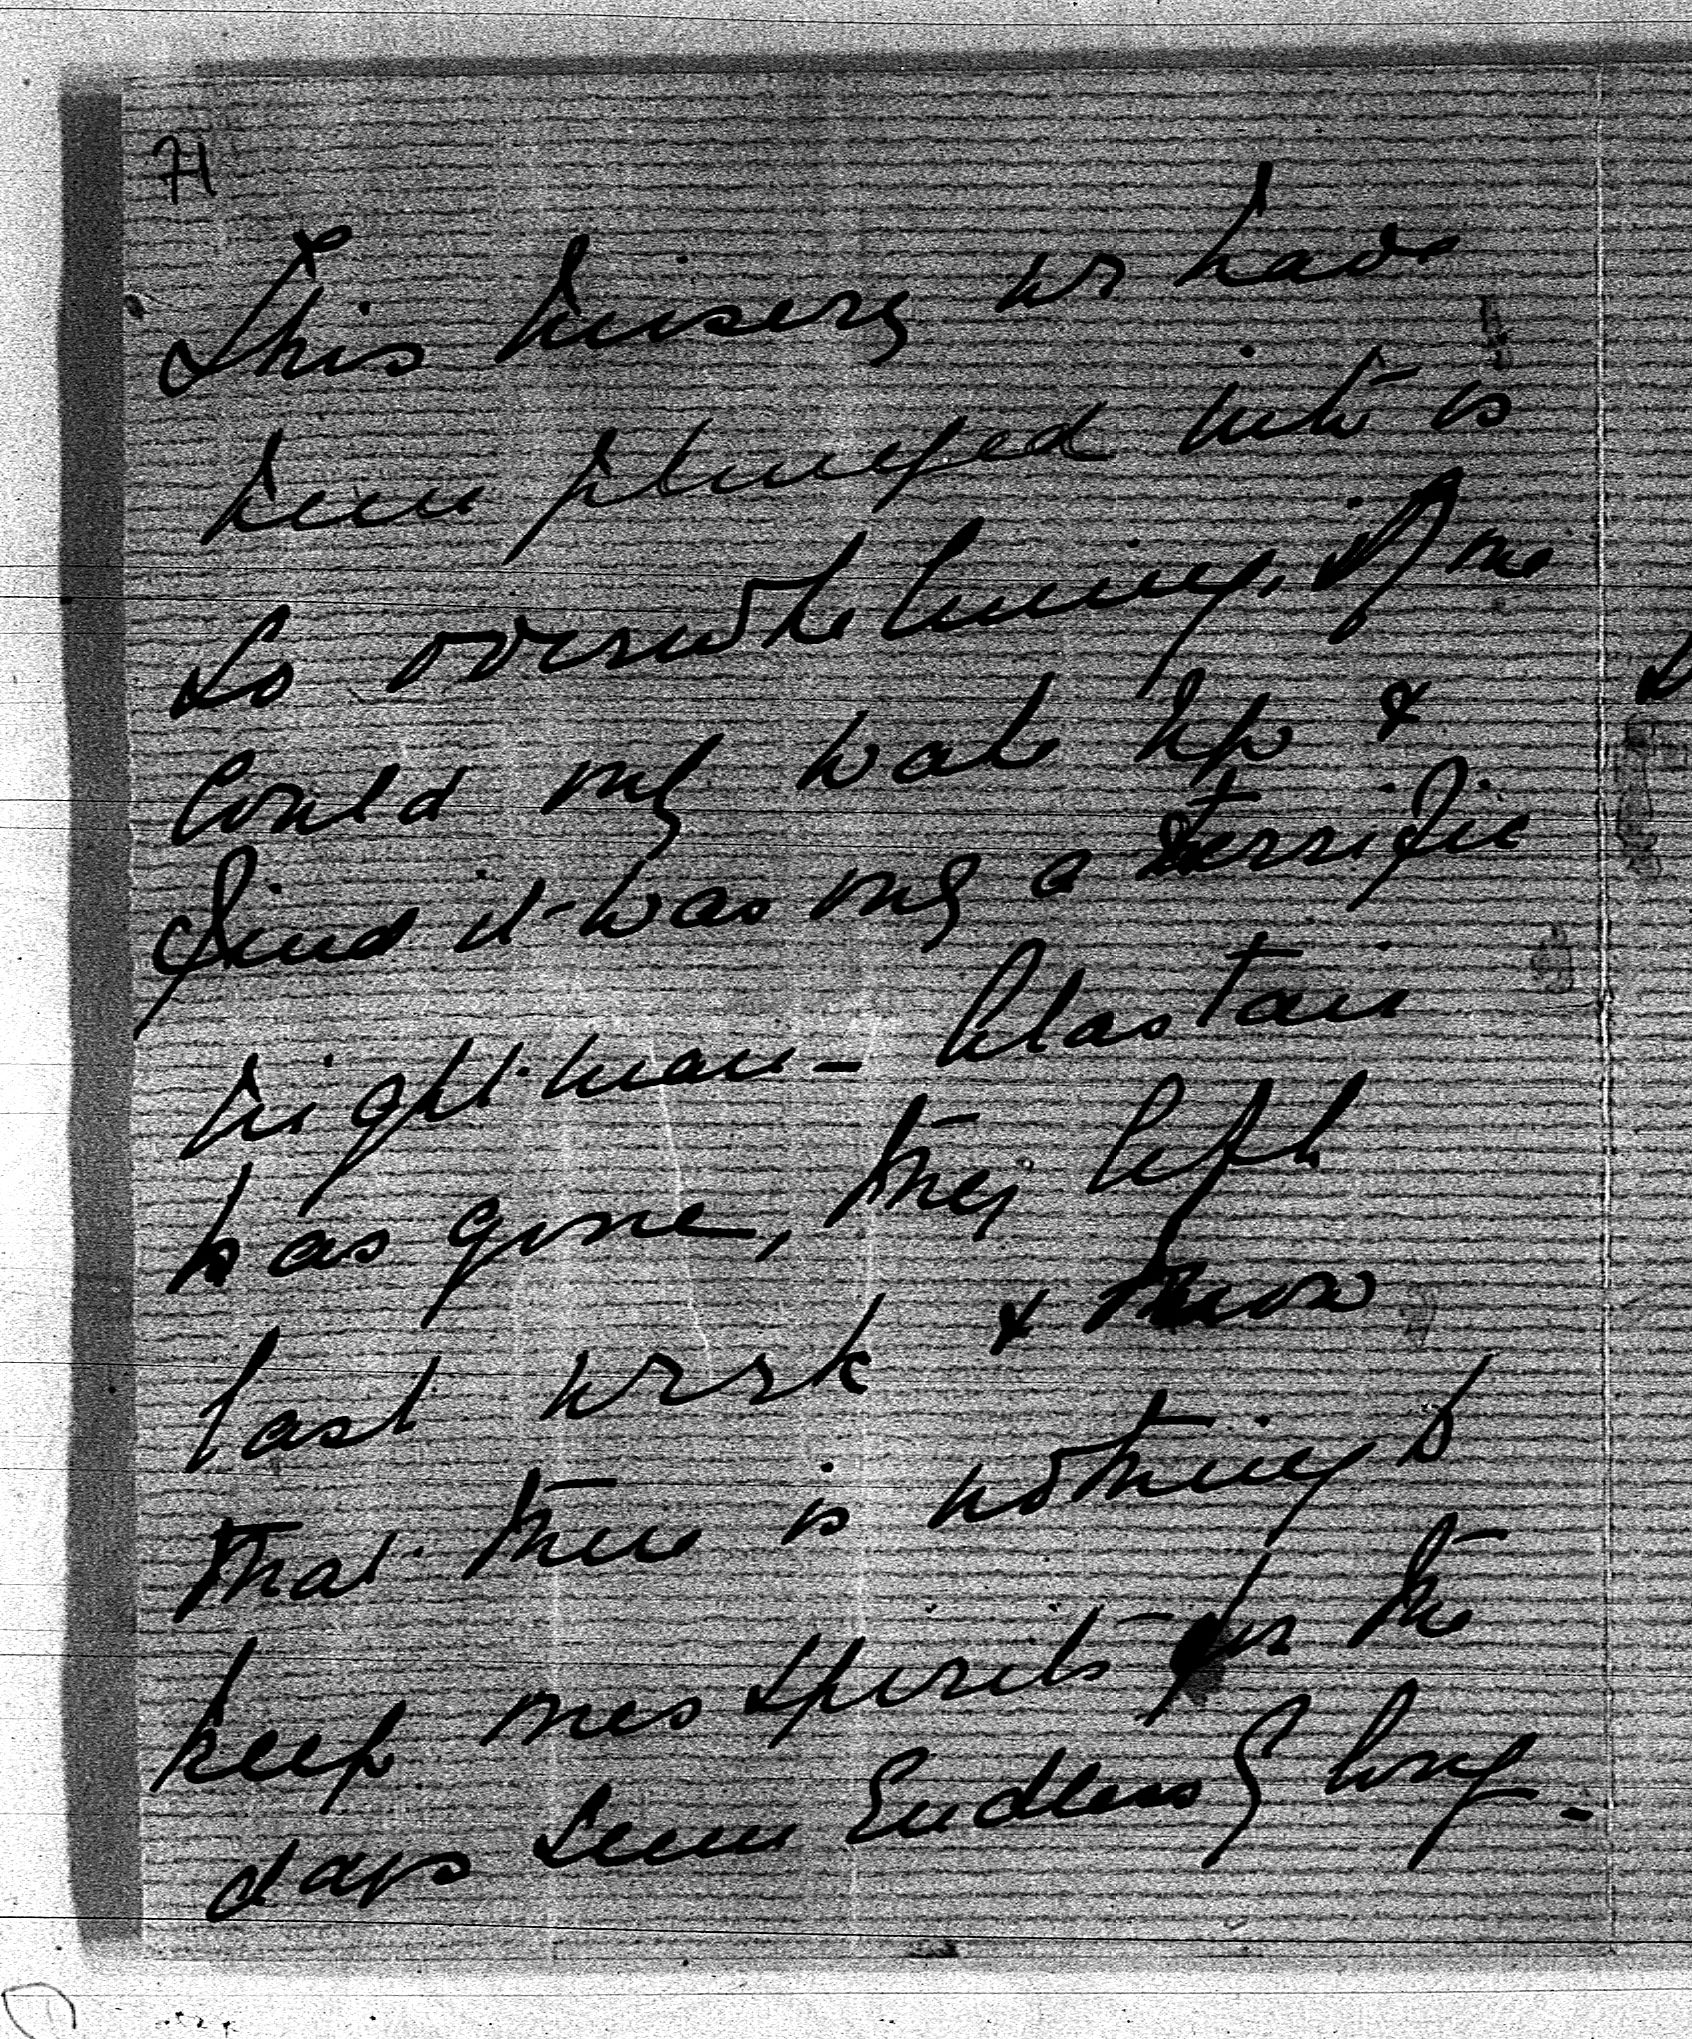 71
This misery we have
been plunged into is
so overwhelming, if one
could only wake up &
find it was only a terrific
nightmare - Alastair
has gone, they left
last week & now
that there is nothing to
keep ones spirits for the
days seem Endless & long -